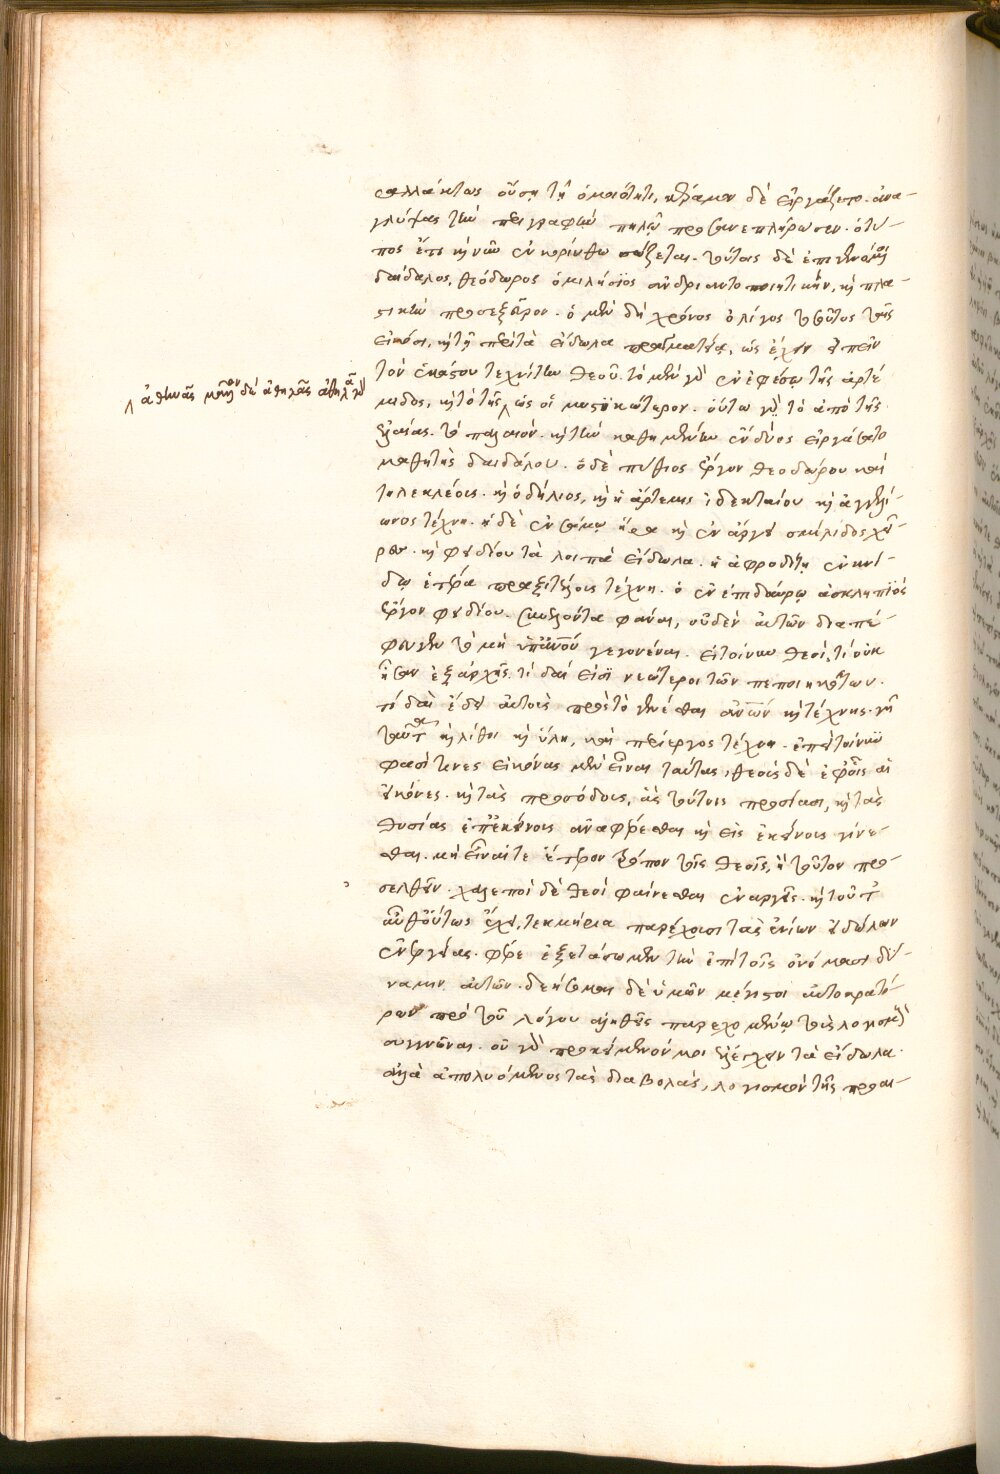 αλλάκτως οὔσῃ τῇ ὁμοιότητι, κέραμον δὲ εἰργάζετο. ἀνα-
γλύψας τὴν περιγραφὴν πηλῷ προσανεπλήρωσεν. ὁ τύ-
πος ἔτι καὶ νῦν ἐν κορίνθῳ σώζεται. τούτοις δὲ ἐπιγενόμενοι
δαίδαλος, θεόδωρος ὁ μιλήσιος ἀνδριαντοποιητικὴν, καὶ πλα-
στικὴν προσεξεῦρον. ὁ μὲν δὴ χρόνος ὀλίγος τοσοῦτος ταῖς
εἰκόσι, καὶ τῇ περὶ τὰ εἴδωλα πραγματείᾳ, ὡς ἔχειν εἰπεῖν
τὸν ἑκάστου τεχνίτην θεοῦ. τὸ μὲν γὰρ ἐν ἐφέσῳ τῆς ἀρτέ
μιδος, καὶ τὸ τῆς ὡς οἱ μυστικώτερον. οὕτω γὰρ τὸ ἀπὸ τῆς
ἐλαίας. τὸ παλαιόν. καὶ τὴν καθημένην ἔνδυος εἰργάσατο
μαθητὴς δαιδάλου. ὁ δὲ πύθιος ἔργον θεοδώρου καὶ
τηλεκλέους. καὶ ὁ δήλιος, καὶ ἡ ἄρτεμις ἰδεκταίου καὶ ἀγγελί-
ωνος τέχνη. ἡ δὲ ἐν σάμῳ ἥρα καὶ ἐν ἄργει σμίλιδος χεῖ-
ρες. καὶ φειδίου τὰ λοιπὰ εἴδωλα. ἡ ἀφροδίτη ἐν κνί-
δῳ ἑτέρα πραξιτέλους τέχνη. ὁ ἐν ἐπιδαύρῳ ἀσκληπιὸς
ἔργον φειδίου. συνελόντα φάναι, οὐδὲν αὐτῶν διαπέ-
φευγεν τὸ μὴ ὑπ' ἀνθρώπου γεγονέναι. εἰ τοίνυν θεοὶ, τί οὐκ
ἦσαν ἐξ ἀρχῆς. τί δαί εἰσϊ νεώτεροι τῶν πεποιηκότων.
τί δαὶ ἔδει αὐτοῖς πρὸς τὸ γενέσθαι ἀνθρώπων καὶ τέχνης. γῆ
ταῦτα καὶ λίθοι καὶ ὕλη, καὶ περίεργος τέχνη. ἐπεὶ τοίνυν
φασί τινες εἰκόνας μὲν εἶναι ταύτας, θεοὺς δὲ ἐφ' οἷς αἱ
εἰκόνες. καὶ τὰς προσόδους, ἃς τούτοις προσίασι, καὶ τὰς
θυσίας ἐπ' ἐκείνους ἀναφέρεσθαι καὶ εἰς ἐκείνους γίνε-
σθαι. μὴ εἶναί τε ἕτερον τρόπον τοῖς θεοῖς, ἢ τοῦτον προ-
σελθεῖν. χαλεποὶ δὲ θεοὶ φαίνεσθαι ἐναργεῖς. καὶ τοῦ τ
αῦθ' οὕτως ἔχει, τεκμήρια παρέχουσι τὰς ἐνίων εἰδώλων
ἐνεργείας. φέρε ἐξετάσωμεν τὴν ἐπὶ τοῖς ὀνόμασι δύ-
ναμιν αὐτῶν. δεήσομαι δὲ ὑμῶν μέγιστοι αὐτοκρατό-
ρων πρὸ τοῦ λόγου ἀληθεῖς παρεχομένῳ τοὺς λογισμοὺς
συγγνῶναι. οὐ γὰρ προκείμενόν μοι ἐλέγχειν τὰ εἴδωλα.
ἀλλὰ ἀπολυόμενος τὰς διαβολὰς, λογισμὸν τῆς προαι-
ἀθηνᾶς μᾶλλον δὲ ἀθηλᾶς ἀθηλᾶ γὰρ